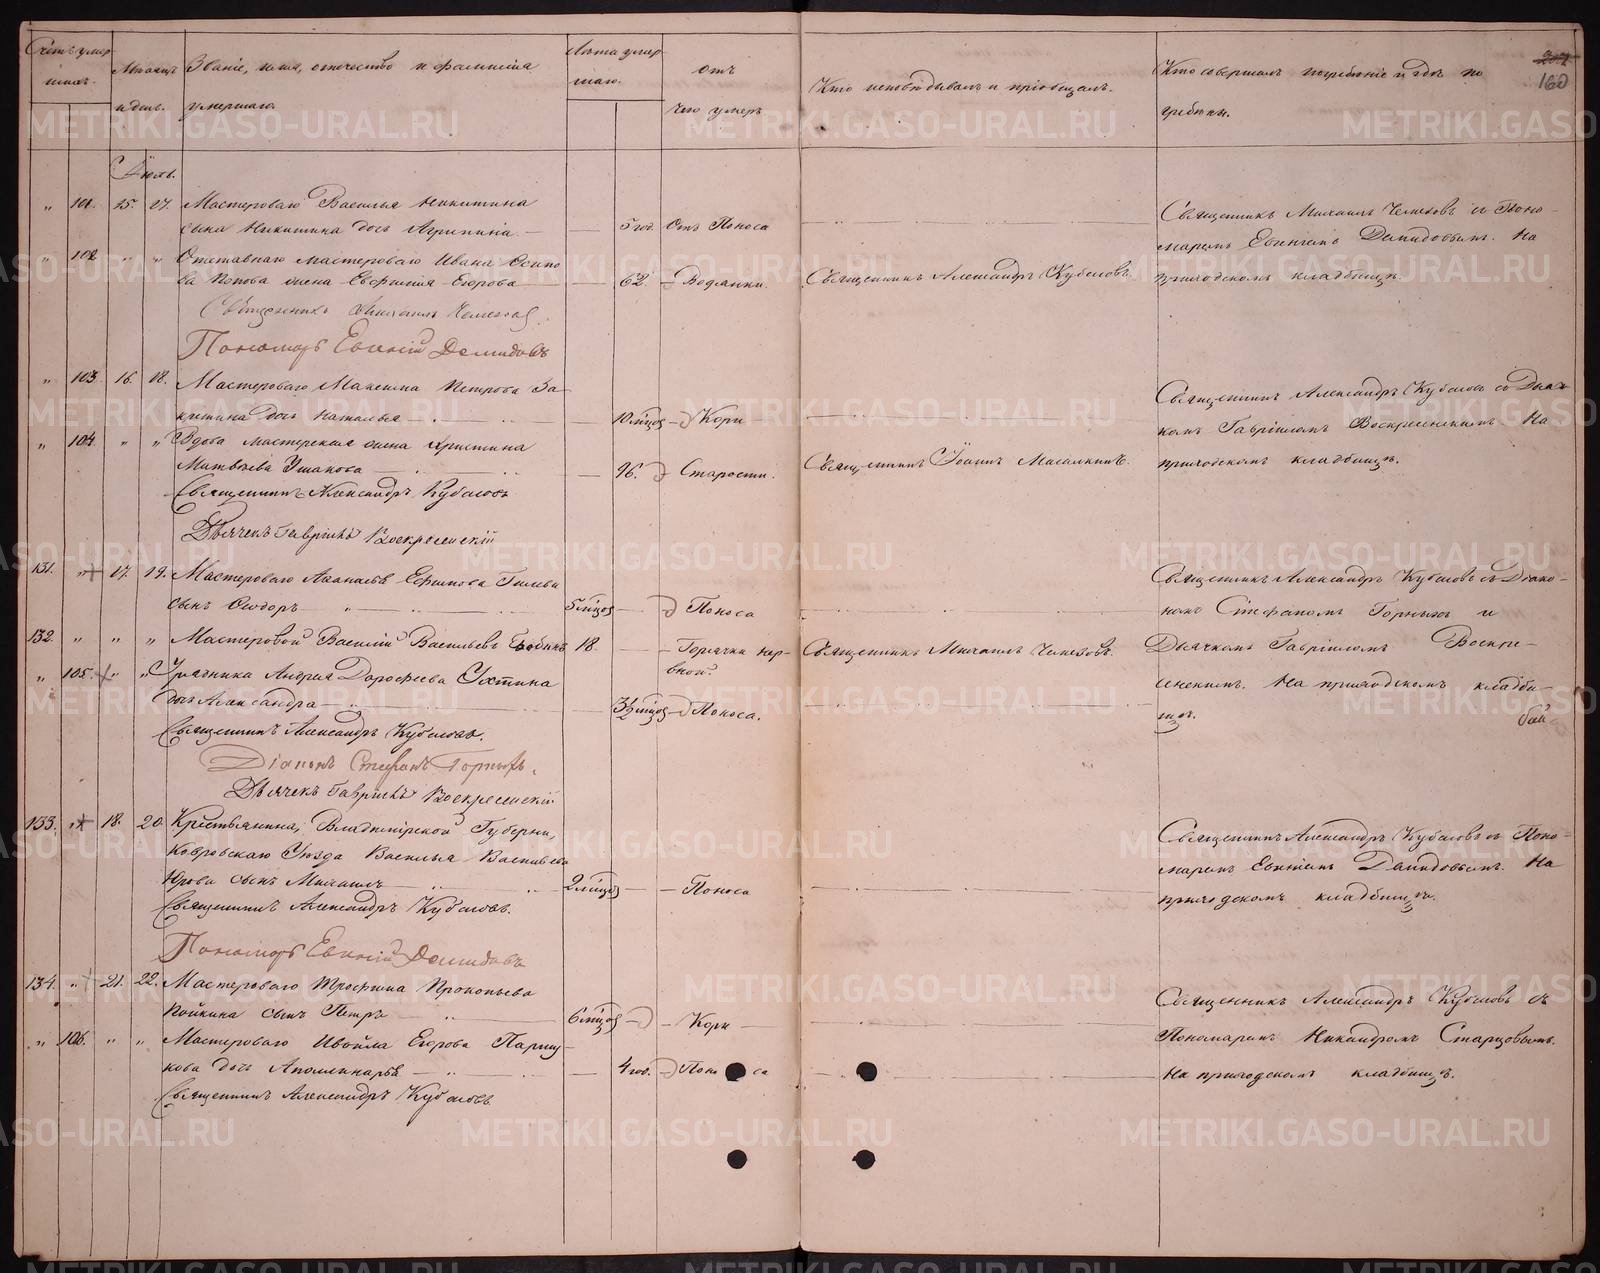 Счетъ умер
шихъ.
Мѣсяцъ
и день.
Званіе, имя, отчество и фамилія
умершаго.
Лѣта умер
шаго.
отъ
чего умеръ
Кто исповѣдывалъ и пріобщалъ.
Кто совершалъ погребеніе и гдѣ по
гребены.
160
Іюль.
" 101. 15. 17. Мастероваго Василья Никитина
сына Никитина дочь Агрипина — 5 год. Отъ Поноса
Священникъ Михаилъ Чемезовъ съ Поно-
маремъ Евгеніемъ Демидовымъ. На
приходскомъ кладбищѣ.
" 102 " " Отставнаго мастероваго Ивана Осипо
ва Попова жена Евфимія Егорова — 62. — Водянки. Священникъ Александръ Кубасовъ.
Священникъ Михаилъ Чемезовъ.
Пономарь Евгеній Демидовъ
" 103. 16. 18. Мастероваго Максима Петрова За
дочь Наталья — 10 мѣсяц — Кори
Священникъ Александръ Кубасовъ съ Дьяч
комъ Гавріиломъ Воскресенскимъ На
приходскомъ кладбищѣ.
" 104. " " Вдова мастерская жена Христина
Матвѣева Ушакова — 96. Старости. Священникъ Іоаннъ
Священникъ Александръ Кубасовъ
Дьячекъ Гавріилъ Воскресенскій
131. " 17. 19. Мастероваго Афанасья Ефимова
сынъ Ѳеодоръ " — 5 мѣсяц — Поноса
Священникъ Александръ Кубасовъ съ Діако-
номъ Стефаномъ Горныхъ и
132. " " " Мастеровой Василій Васильевъ 18. — Горячки нер-
вной. Священникъ Михаилъ Чемезовъ.
Дьячкомъ Гавріиломъ Воскре-
сенскимъ. На приходскомъ кладби-
щѣ.
" 105. " " Андрея Дорофеева Ухтина
дочь Александра — 3½ мѣсяц — Поноса.
Священникъ Александръ Кубасовъ.
Діаконъ Стефанъ Горныхъ.
Дьячекъ Гавріилъ Воскресенскій
133. " 18. 20. Крестьянина, Владимірской Губерніи,
Ковровскаго Уѣзда Василья Васильева
Юрова сынъ Михаилъ — 2 мѣсяц — Поноса
Священникъ Александръ Кубасовъ съ Поно-
маремъ Евгеніемъ Демидовымъ. На
приходскомъ кладбищѣ.
Священникъ Александръ Кубасовъ.
Пономарь Евгеній Демидовъ
134. " 21. 22. Мастероваго Трофима Прокопьева
Пойкина сынъ Петръ — 6 мѣсяц — Кори
Священникъ Александръ Кубасовъ съ
Пономаремъ Никандромъ Старцовымъ.
На приходскомъ кладбищѣ.
" 106. " " Мастероваго Ивойла Егорова Паршу
кова дочь Аполлинарія — 4 год. — Поноса
Священникъ Александръ Кубасовъ
METRIKI.GASO-URAL.RU